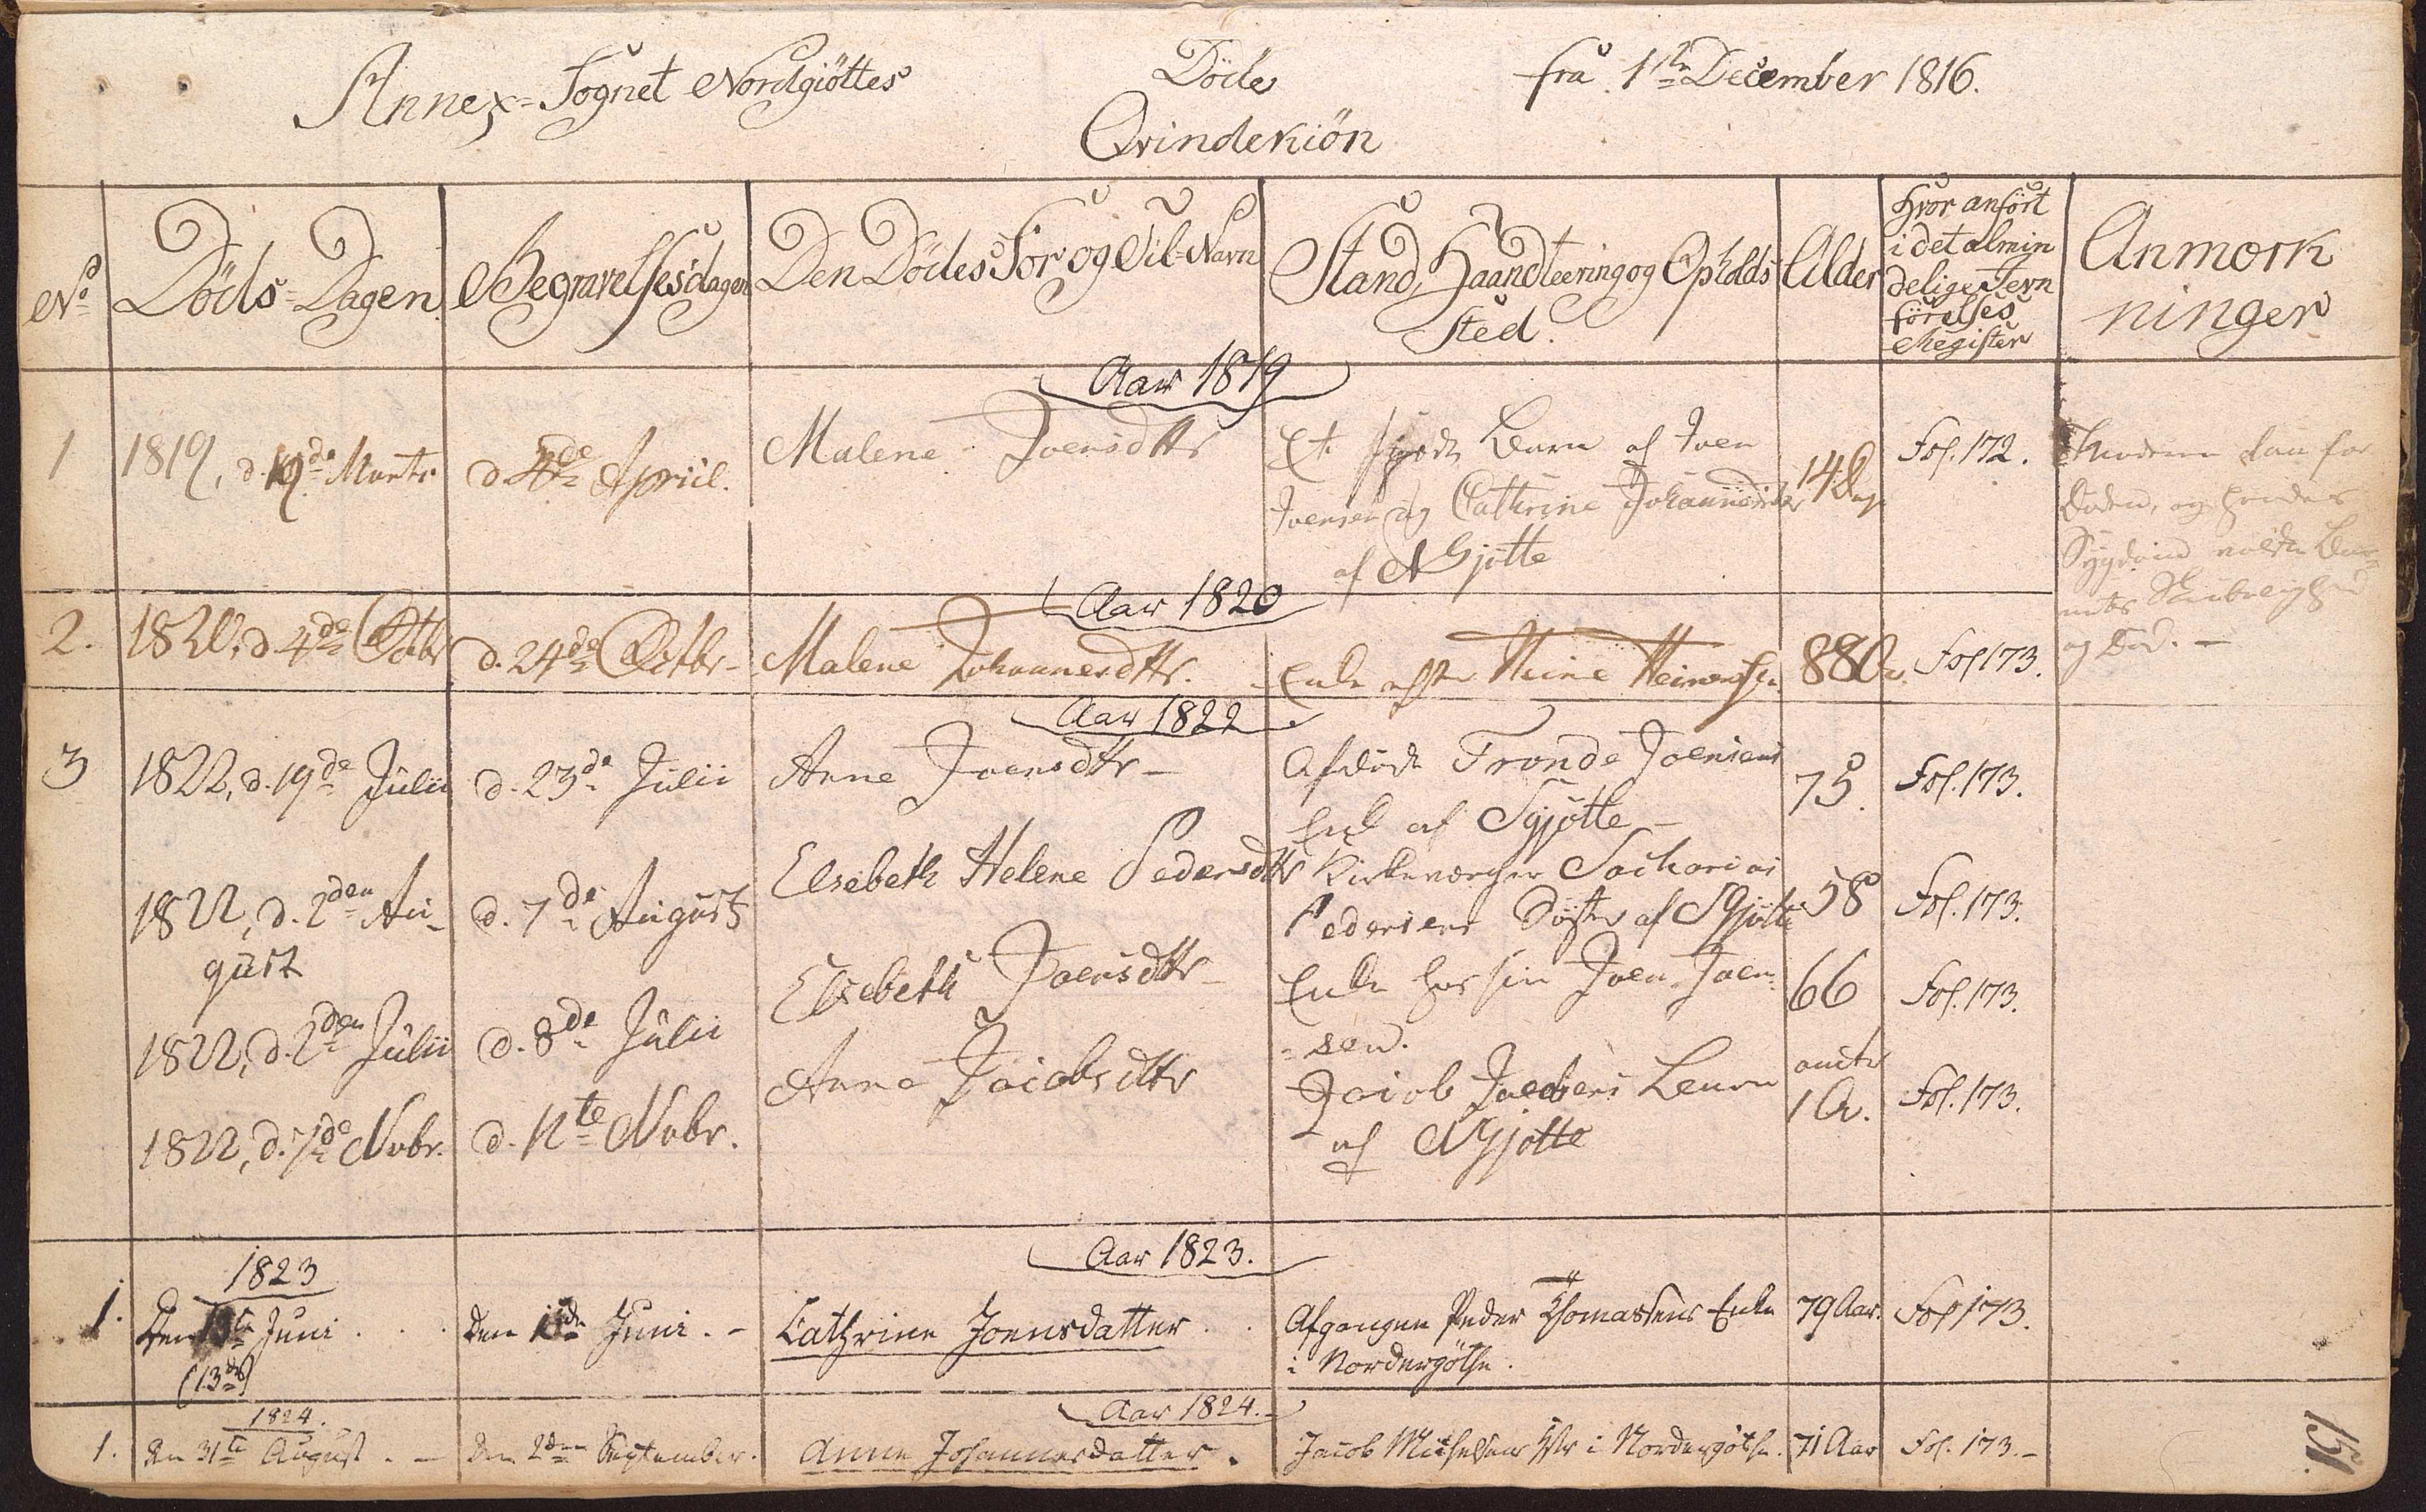 Annex-Sognet Nordgiöttes Döde fra 1te December 1816.
Qvindekiön
No
Döds-Dagen
Begravelsesdagen
Den Dödes For og Til-Navn
Stand, Haandteering og Opholds
Sted.
Alder
Hvor anfört
i det almin
delige Jevn
förelses
Register
Anmœrk
ninger
Aar 1819
1 1819, d. 19de Marts d. 4de April. Malene Joensdttr
Et spædt Barn af Joen
Joensen og Cathrine Johannesdtr
af NGjøtte
14 Dage
Fol. 172.
Moderen laae for
Døden, og hendes
Sygdom voldte Bar-
nets Skrøbelighed
og Død. -
Aar 1820
2. 1820, d. 4de Octbr d. 24de Octbr - Malene Johannesdttr. Enke efter Heine Heinesen 88 A. Fol 173.
Aar 1822
3 1822, d. 19de Julii d. 23de Julii Anne Joensdttr -
Afdøde Tronde Joensens
Enke af Sgjøtte -
75.
Fol. 173.
1822, d. 2den Au-
gust
d. 7de August
Elsebeth Helene Pedersdttr
Kirkeværger Sacharias
Pedersens Søster af SGjøtte
58
Fol. 173.
1822, d. 2den Julii d. 8de Julii
Elsebeth Joensdttr -
Enke hos sin Joen Joen-
-sen.
66
Fol. 173.
1822, d. 7de Nobr. d. 11te Nobr.
Anne Jacobsdttr
Jacob Jacobsens Barn
af NGjøtte
1 A.
Fol. 173.
Aar 1823.
1823
1. Den 13te Juni . . .
(13de)
Den 18de Juni . - Cathrine Joensdatter . .
Afgangne Peder Thomassens Enke
i Nordergøthe.
79 Aar.
Fol 173.
Aar 1824. -
1824.
1. Den 31te August . - Den 2den September. Anne Johannesdatter. Jacob Michelsens Hstr i Nordergøthe. 71 Aar Fol. 173. -
151.